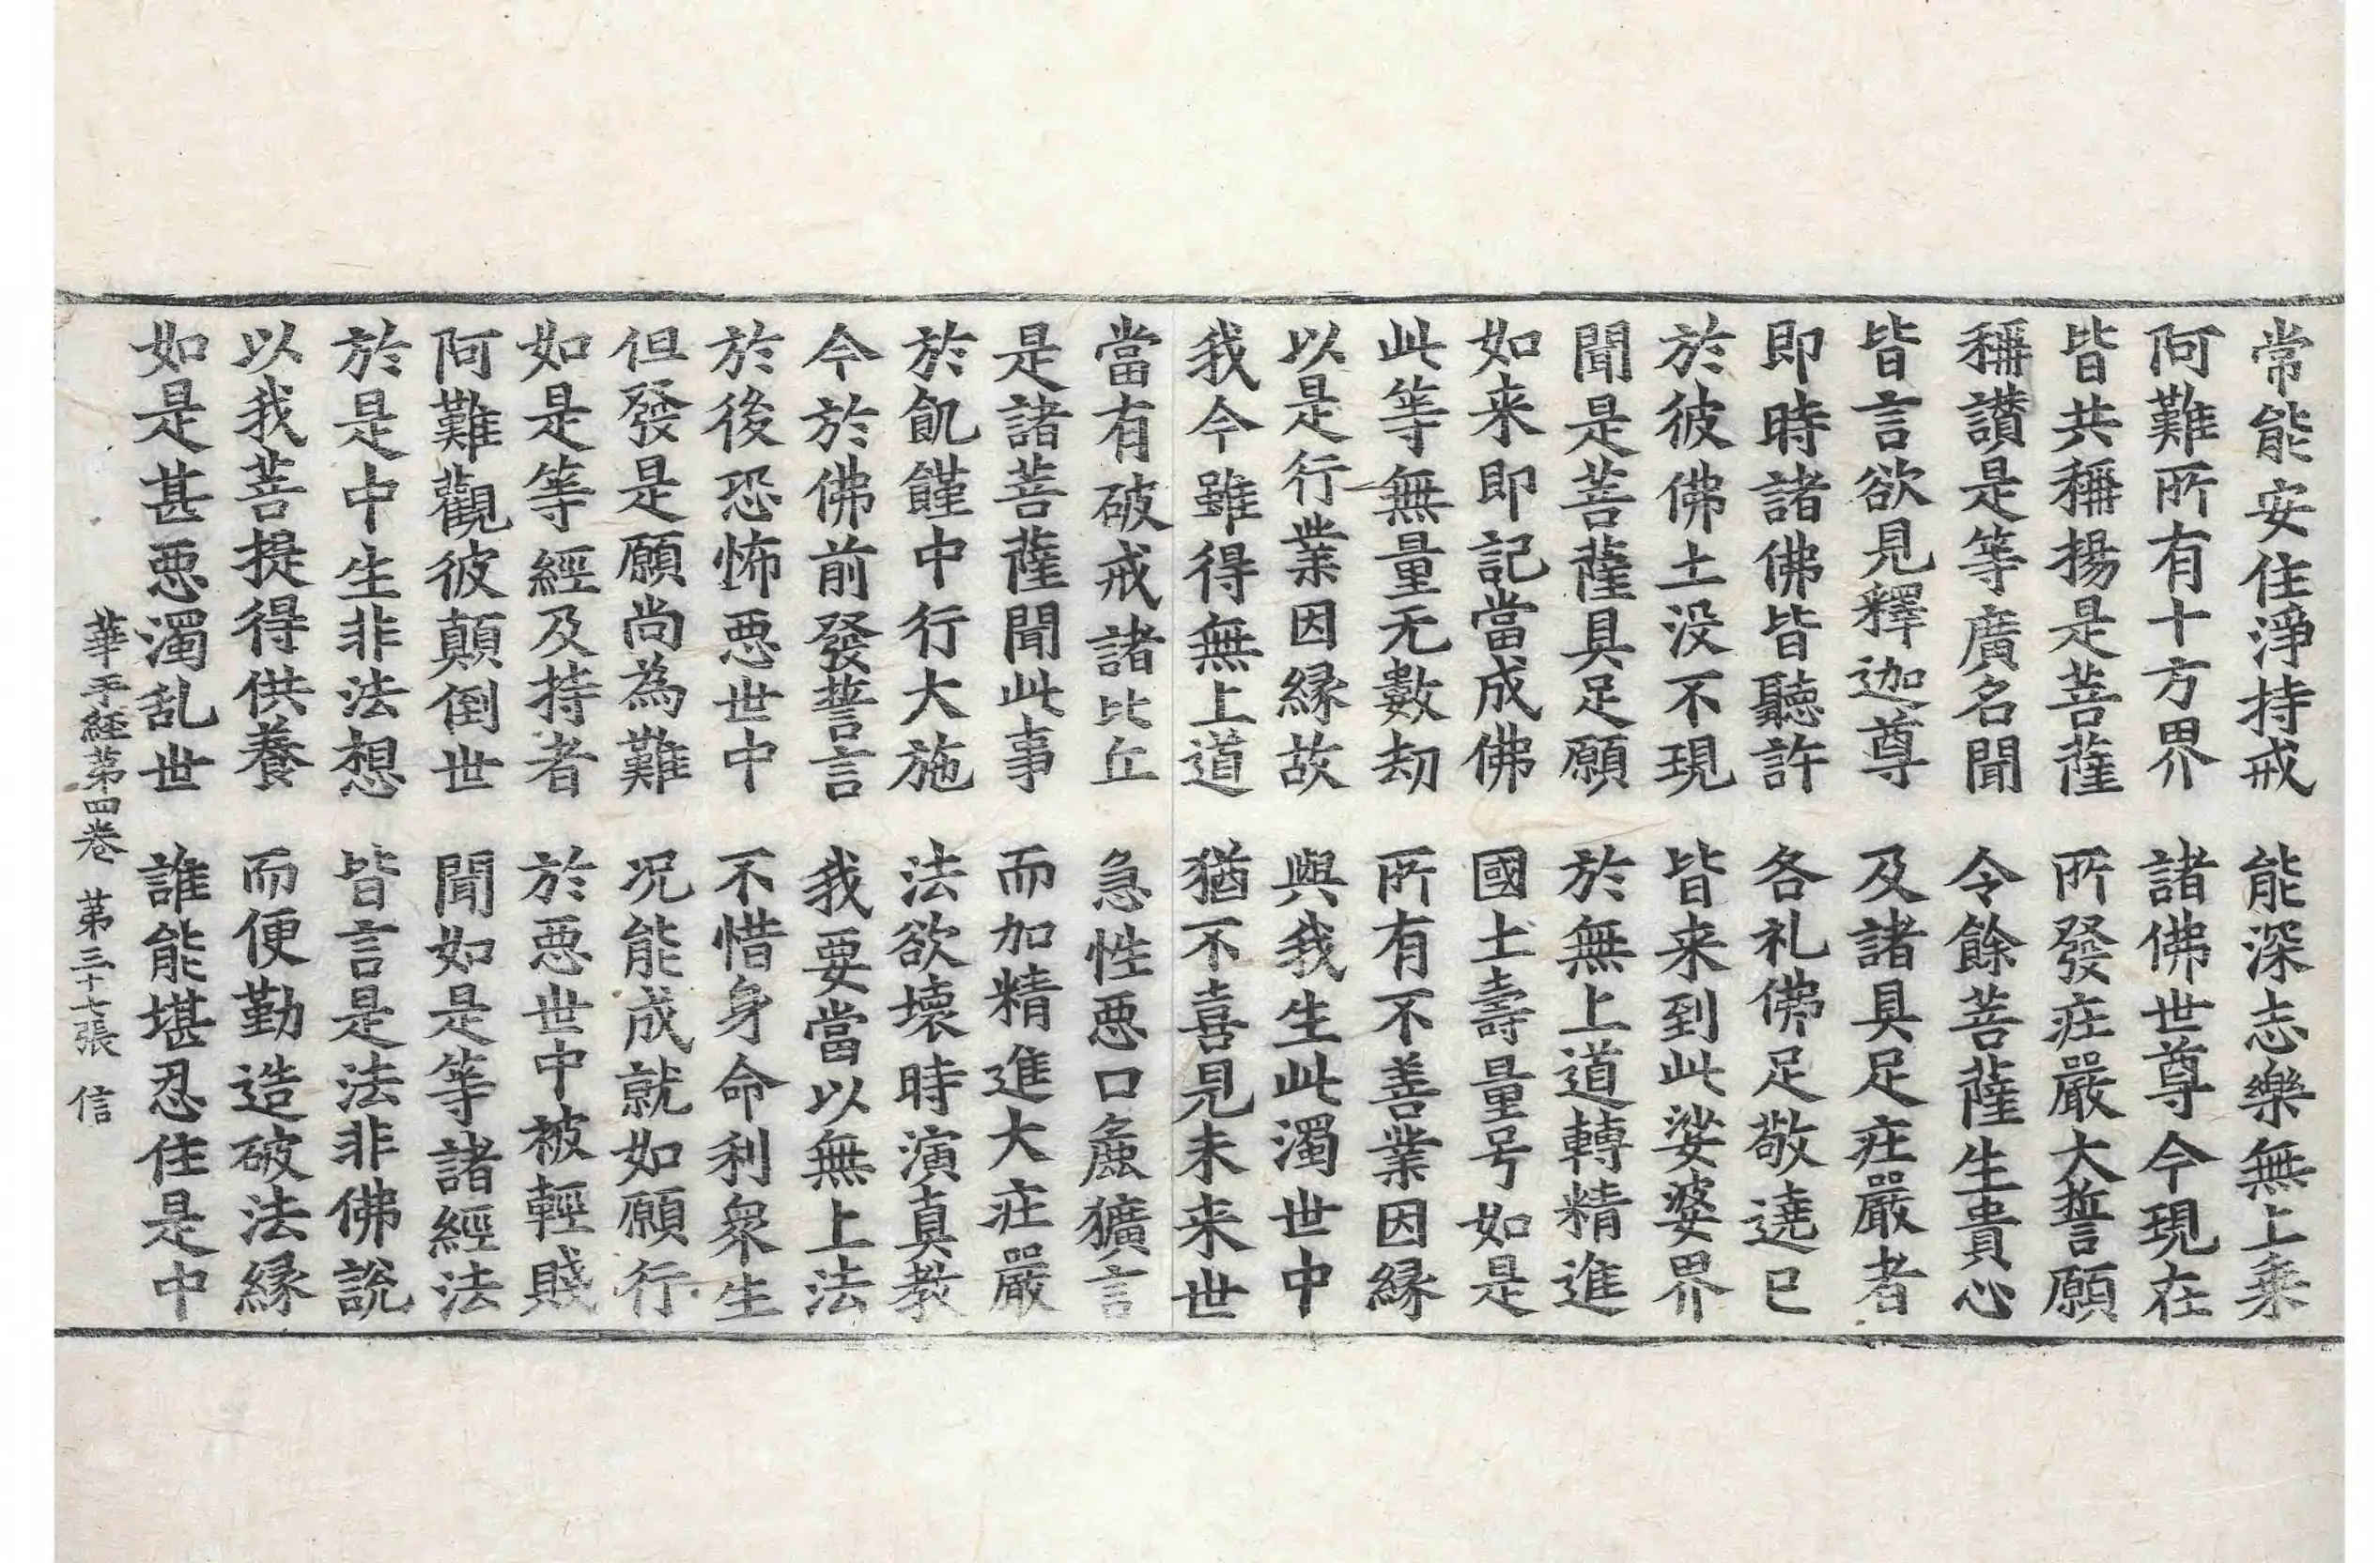 常能安住淨持戒　能深志樂無上乗
阿難所有十方界　諸佛世尊今現在
皆共稱揚是菩薩　所發莊嚴大誓願
稱讃是等廣名聞　令餘菩薩生貴心
皆言欲見釋迦尊　及諸具足莊嚴者
即時諸佛皆聽許　各礼佛足敬遶已
於彼佛土没不現　皆来到此娑婆界
聞是菩薩具足願　於無上道轉精進
如来即記當成佛　國土壽量号如是
此等無量无數劫　所有不善業因縁
以是行業因縁故　與我生此濁世中
我今雖得無上道　猶不喜見未来世
當有破戒諸比丘　急性惡口麁獷言
是諸菩薩聞此事　而加精進大莊嚴
於飢饉中行大施　法欲壊時演真教
今於佛前發誓言　我要當以無上法
於後恐怖惡世中　不惜身命利衆生
但發是願尚為難　况能成就如願行
如是等經及持者　於惡世中被輕賤
阿難觀彼顛倒世　聞如是等諸經法
於是中生非法想　皆言是法非佛說
以我菩提得供養　而便勤造破法縁
如是甚惡濁乱世　誰能堪忍住是中
華手経第四卷　第三十七張　信